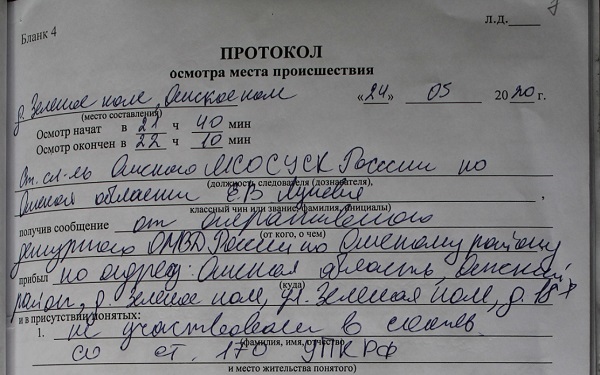 Л.Д.
Бланк 4
ПРОТОКОЛ
осмотра места происшествия
д. Зеленое поле, Омское пом «24» 05 2020 г.
(место составления)
Осмотр начат в 21 ч 40 мин
Осмотр окончен в 22 ч 10 мин
Ст. сл-ль Омского МСО СУ СК России по
(должность следователя (дознавателя),
Омской области Е.В.
классный чин или звание, фамилия, инициалы)
получив сообщение от оперативного
(от кого, о чем)
дежурного ОМВД России по Омскому району
прибыл по адресу: Омская область, Омский
(куда)
район, д. Зеленое поле, ул. Зеленая поле, д.
и в присутствии понятых:
1. не участвовали в соотв
(фамилия, имя, отчество
со ст. 170 УПК РФ
и место жительства понятого)